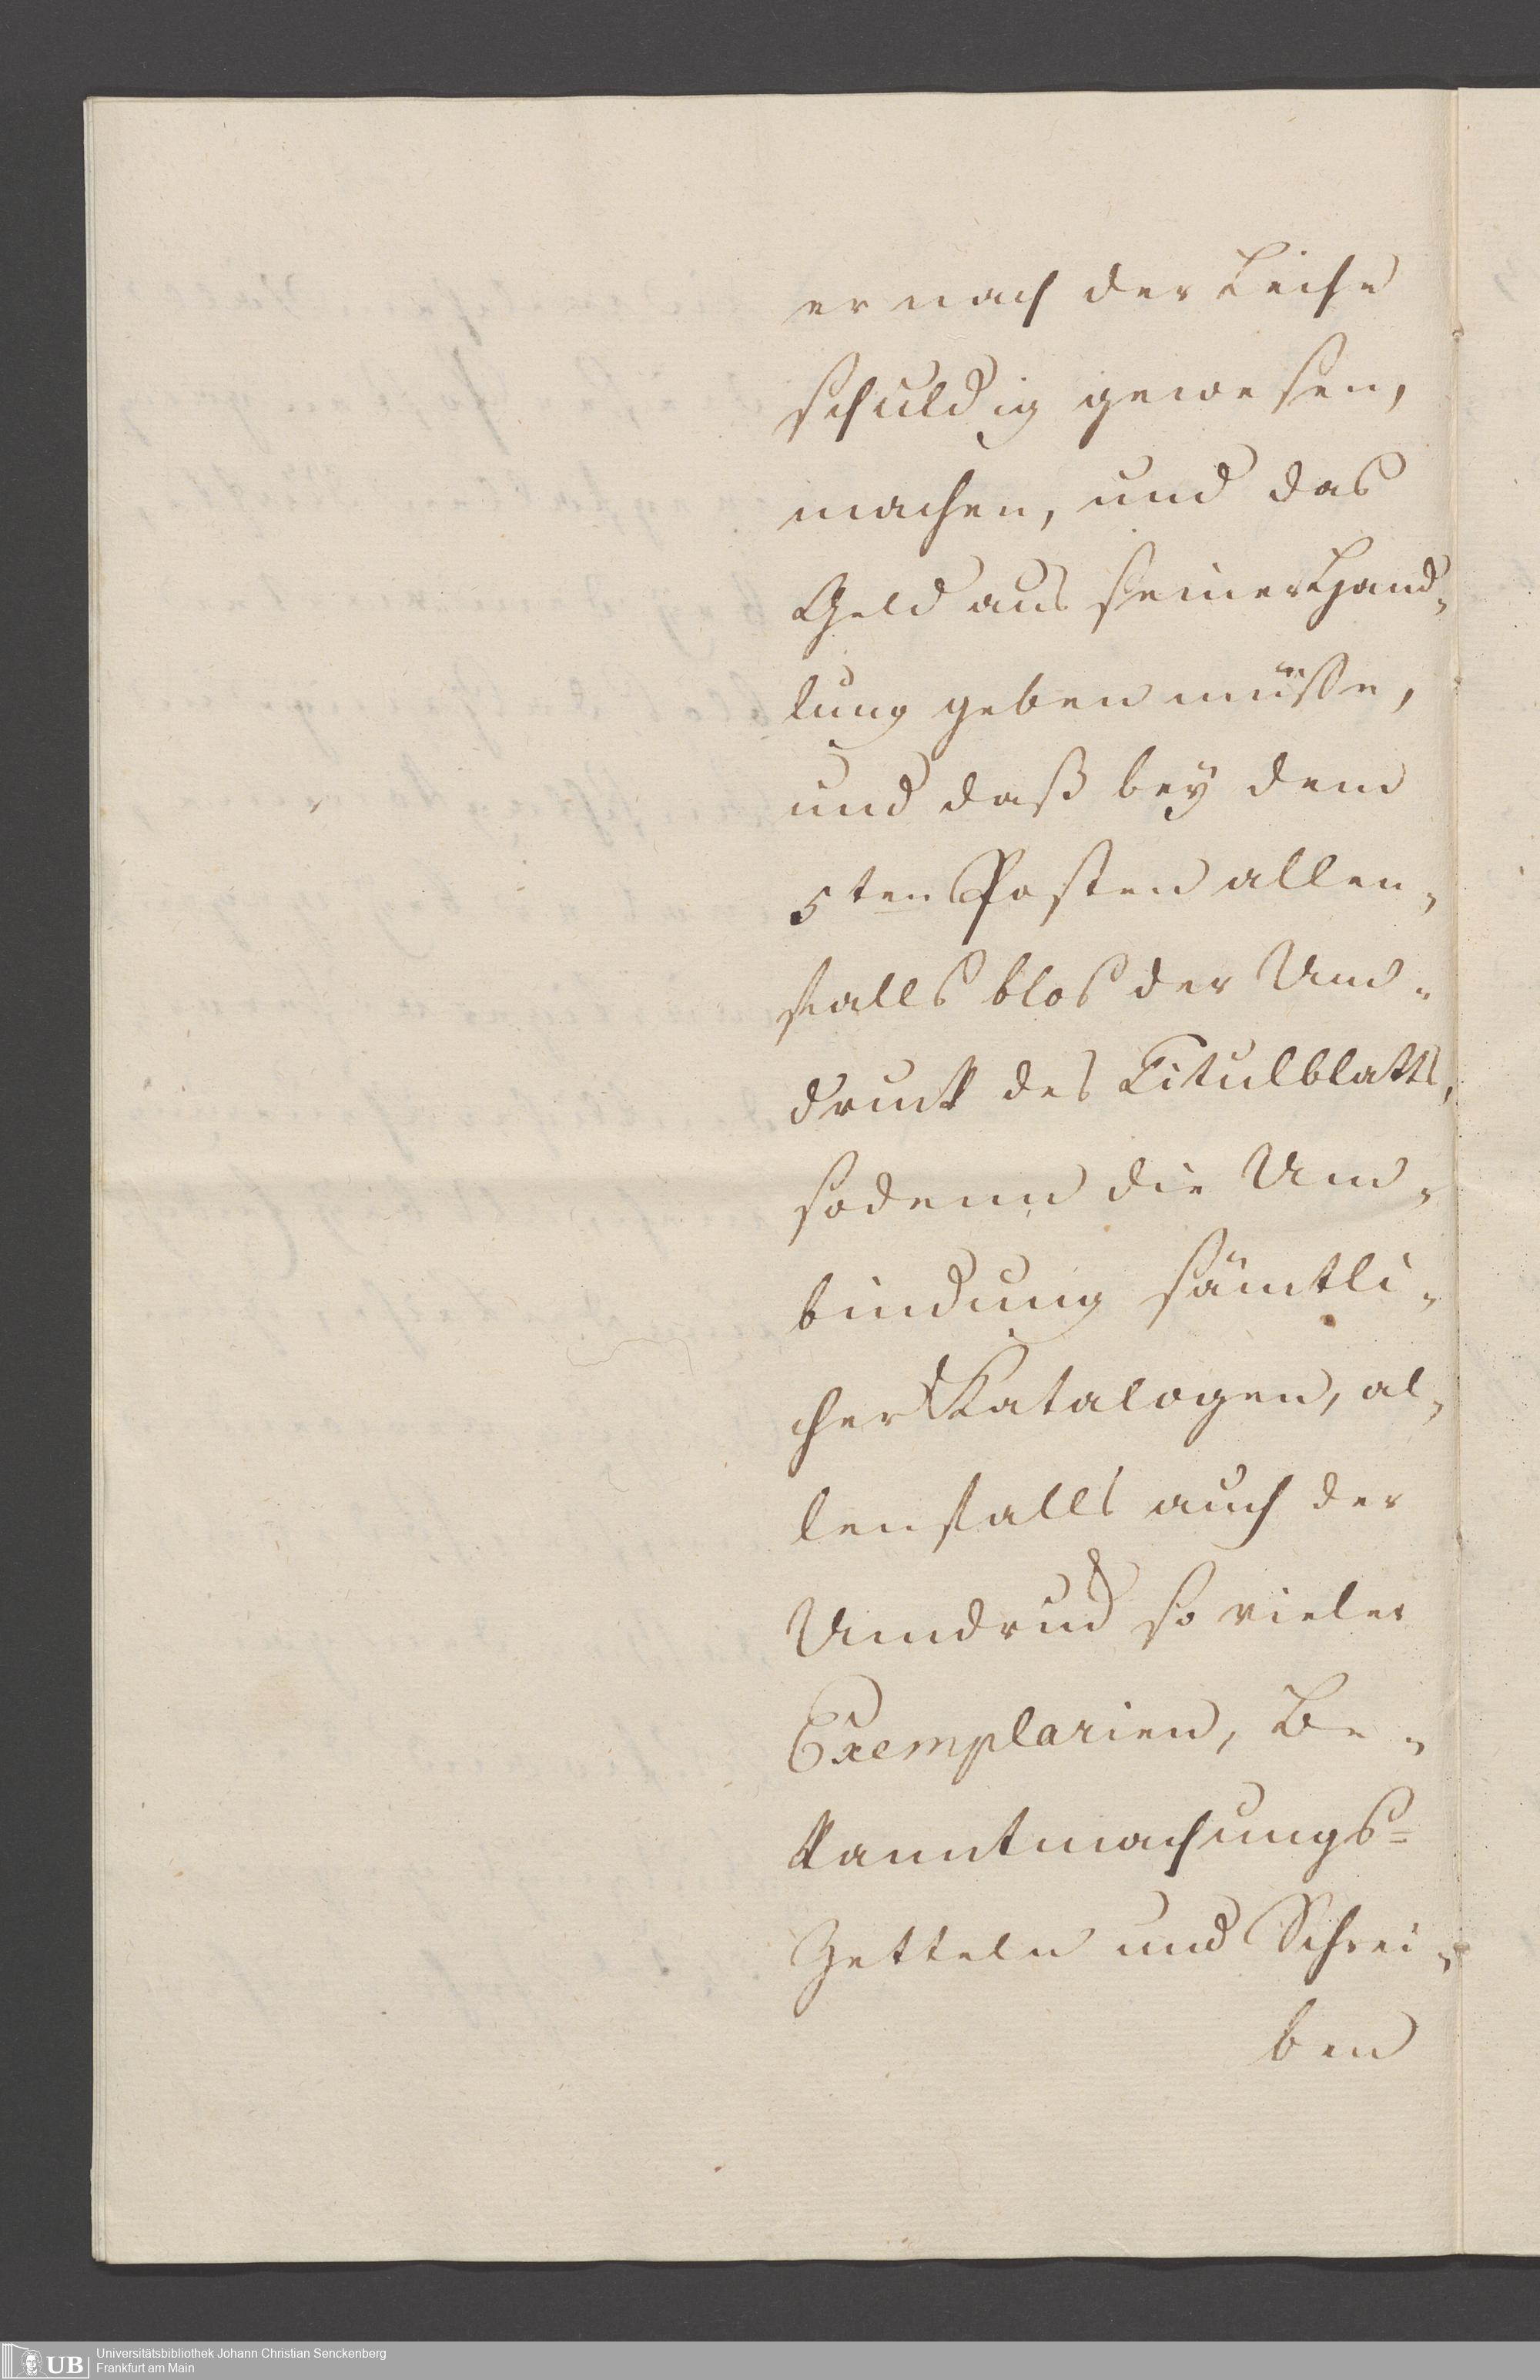 er nach der Leiche
schuldig gewesen,
machen, und das
Geld aus seiner Hand-
lung geben müsse,
und daß bey dem
5ten Posten allen-
falls blos der Um-
druck des Titulblatts,
sodenn die Um-
bindung sämtli-
cher Katalogen, al-
lenfalls auch der
Umdruck so vieler
Exemplarien, Be-
kanntmachungs=
Zetteln und Schrei-
ben
UB
Universitätsbibliothek Johann Christian Senckenberg
Frankfurt am Main